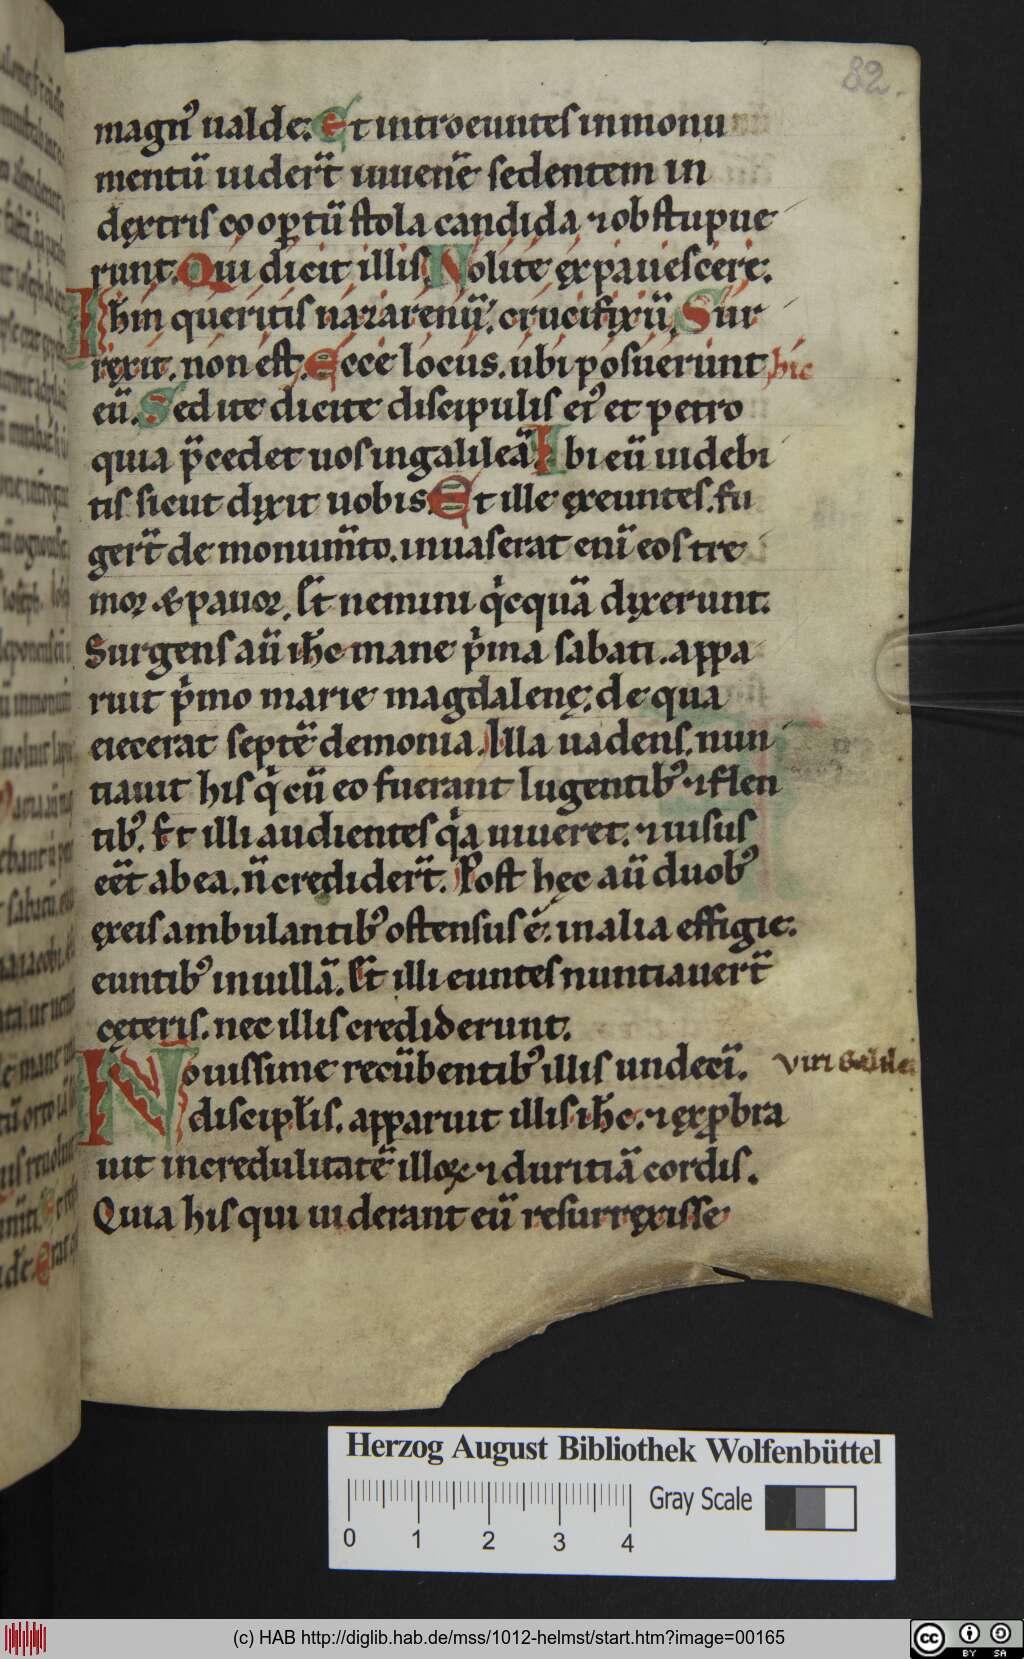 82.
magnꝰ ualde; Et introeuntes in monu
mentū uiderr̄t iuuenē sedentem in
dęxtris coopertū stola candida ⁊ obstupue
runt. Qui dicit illis. Nolite ęxpauescere;
Ihm̄ queritis nazarenū; crucifixū. Sur
ręxit. non est. Ecce locus. ubi posuerunt hic
eū. Sed ite dicite discipulis eiꝰ et petro
quia p̄cedet uos in galileā. Ibi eū uidebi
tis sicut dixit uobis. Et ille ęxeuntes. fu
gerr̄t de monum̄to. inuaserat enī eos tre
mor & pauor. Et nemini qͥcquā dixerunt.
Surgens aū ihc̄ mane pͥma sabati. appa
ruit pͥmo marie magdalenę; de qua
eiecerat septē demonia. Illa uadens. nun
tiauit his qͥ cū eo fuerant lugentibꝰ ⁊ flen
tibꝰ. Et illi audientes qͥa uiueret. ⁊ uisus
eēt ab ea. n̄ credider̄t. Post hęc aū duobꝰ
ęx eis ambulantibꝰ ostensus ē; in alia effigie;
euntibꝰ in uillā. Et illi euntes nuntiauer̄t
cęteris. nec illis crediderunt.
Nouissime recūbentibꝰ illis undecī. Viri Galilei
discipl̄is. apparuit illis ihc̄. ⁊ ęxꝓbra
uit incredulitatē illoꝝ ⁊ duritiā cordis.
Quia his qui uiderant eū resurręxisse
Herzog August Bibliothek Wolfenbüttel
Gray Scale
0 1 2 3 4
(c) HAB http://diglib.hab.de/mss/1012-helmst/start.htm?image=00165
cc BY SA